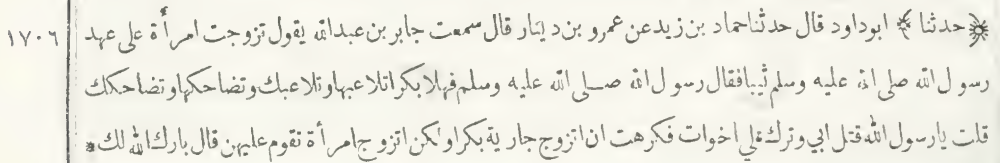 ﴿حدثنا﴾ ابوداود قال حدثنا حماد بن زيد عن عمرو بن دينار قال سمعت جابر بن عبدالله يقول تزوجت امرأة على عهد ١٧٠٦
رسول الله صلى الله عليه وسلم ثيبا فقال رسول الله صلى الله عليه وسلم فهلا بكرا تلاعبها وتلاعبك وتضاحكها وتضاحكك
قلت يا رسول الله قتل ابي وترك علي اخوات فكرهت ان اتزوج جارية بكرا ولكن اتزوج امرأة تقوم عليهن قال بارك الله لك *